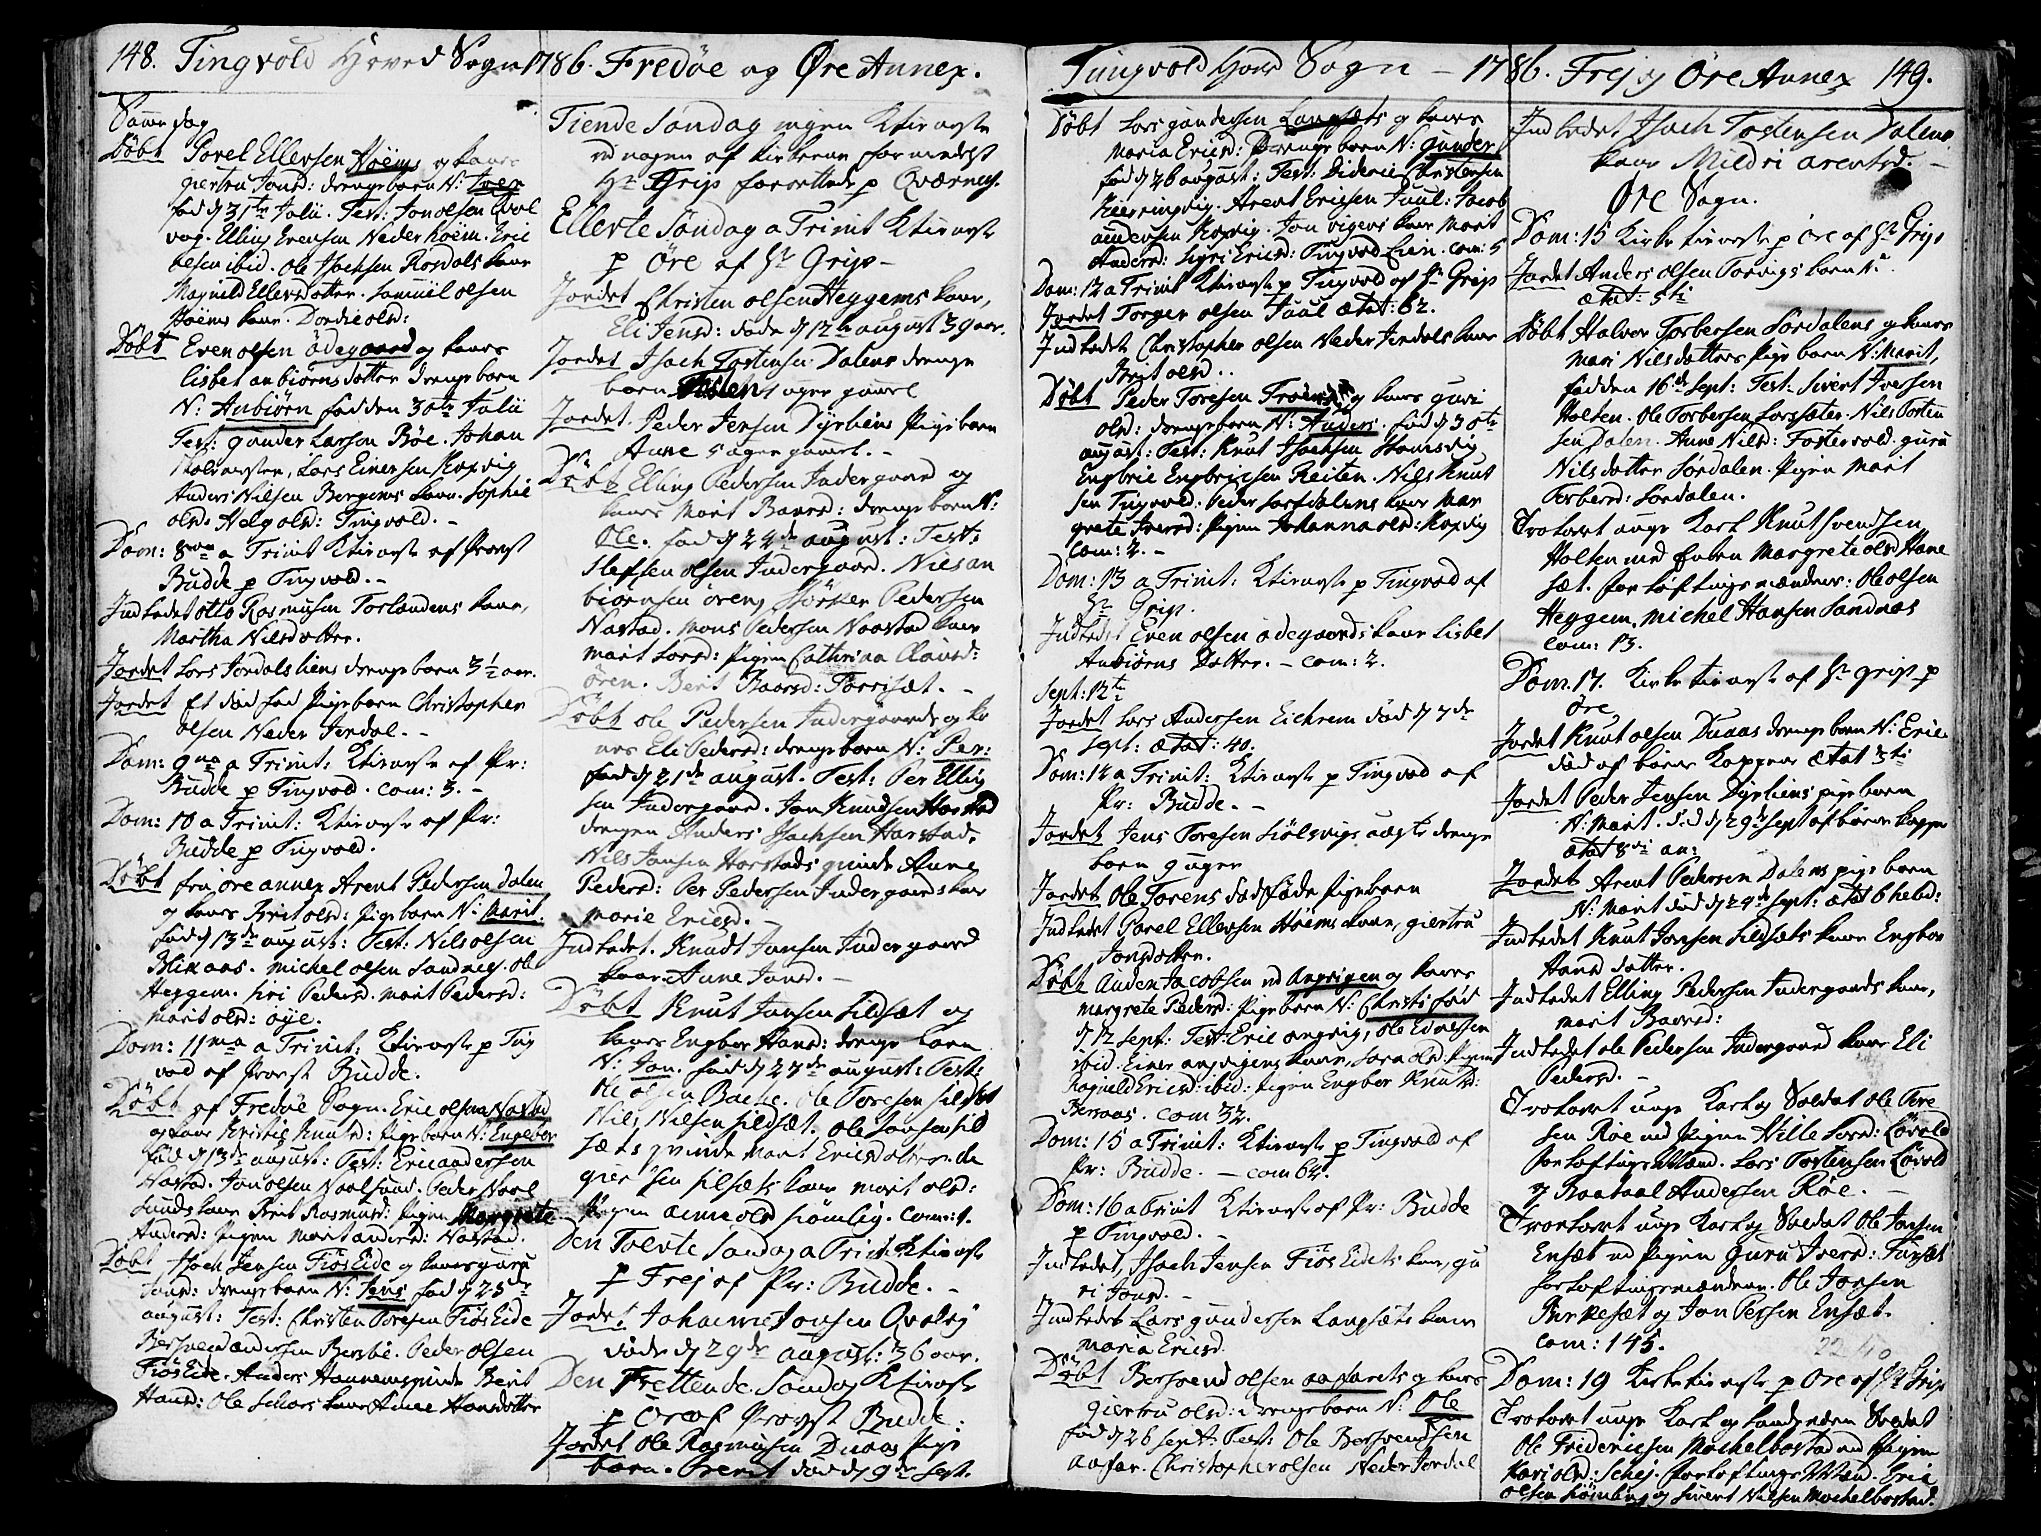 148. Tingvold Hoved Sogn 1786. Fredöe og Øre Annex.
Samme dag
Döbt Povel Ellevsen Höems og kones
giertru Jonsd: drengebarn N: Iver
fød d 31te Julii. Test: Jon olsen Qval
vog. Elling Evensen Neder Höem. Eric
olsen ibid. Ole Isachsen Rosdals kone
Magnild Ellevsdatter. Samuel olsen
Höems kone. Dordie olsd:
Döbt Even olsen ödegaard og kones
lisbet anbiörnsdatter drengebarn
N: Anbiörn fød den 30te Julii
Test: gunder Larsen Böe. Johan
Lars Einersen Kopvig
Anders Nilsen Bergems kone. Sophie
olsd. Helg olsd: Tingvold. –
Dom: 8va a Trinit Ktieneste af Provst
Budde p Tingvold. –
Indledet otto Rasmusen Torlandens kone,
Martha Nilsdotter.
Jordet Lars Jordalsliens drengebarn 3½ aar.
Jordet Et død fød Pigebarn Christopher
olsen Neder Jerdal. –
Dom: 9na a Trinit: Ktieneste af Pr:
Budde p Tingvold. com: 5. –
Dom: 10 a Trinit: Ktieneste af Pr:
Budde p Tingvold.
Döbt fra öre annex Arent Pedersen Dalen
og kones Brit olsd: Pigebarn N: Marit.
fød d 13de august: Test: Nils olsen
Blikaas. michel olsen Sandnes. ole
Heggem. Siri Pedersd. marit Pedersd:
marit olsd: öye.
Dom: 11ma a Trinit: Ktieneste p Ting
vod af Provst Budde.
Döbt af Fredöe Sogn. Eric olsen Nastad
og kone Kristi Knutsd: Pigebarn N: Engebor
fød d 13de august: Test: Eric andersen
Nastad. Jon olsen Naalsund. Peder Naal
sunds kone Brit Rasmusd: Pigen Margrete
Andersd: Pigen Marit andersd: Nastad.
Döbt Isach Jensen Fiös Eide og kones guru
Jonsd: drengebarn N: Jens fød d 23de
august: Test: Christen Toresen Fiös Eide
Bersvend andersen Bersbö. Peder olsen
Fiös Eide. Anders Hannems qvinde Berit
Hansd: Ole kone Anne Hansdotter
Tiende Söndag ingen Ktieneste
ved nogen af kirkerne formedelst
Hr Grip forrettede p Qværnes.
Ellevte Söndag a Trinit Ktieneste
p Öre af Hr Grip –
Jordet Christen olsen Heggems kone,
Eli Jensd: døde d 12te august 39 aar.
Jordet Isach Tostensen Dalens drenge
barn Tosten 1 uger gaml
Jordet Peder Jensen Dyrliens Pigebarn
Anne 5 uger gamel. –
Döbt Elling Pedersen Indergaard og
kones Marit Baarsd: drengebarn N:
Ole. fød d 24de august: Test:
Steffen olsen Indergaard. Niels an
biörnsen ören, Störker Pedersen
Nastad. Mons Pedersen Naastad kone
marit Larsd: Pigen Cathrina Clausd:
ören. Berit Baarsd: Torrisæt. –
Döbt ole Pedersen Indergaards og ko
nes Eli Pedersd: drengebarn N: Per:
fød d 21de august. Test: Per Elling
sen Indergaard. Jon Knudsen Harstad
drengen Anders Isachsen Harstad.
Nils Jonsen Harstads qvinde Anne
Pedersd: Per Pedersen Indergaards kone
Marie Ericsd. –
Indledet. Knudt Jonsen Indergaard
kone Anne Jonsd. –
Döbt Knut Jonsen Sildset og
kones Engbor Hansd: drengebarn
N: Jon. fød d 27de august: Test:
ole olsen Bache. ole Toresen Sildset
Nils Nilsen sildset. ole Jonsen sild
sæts qvinde Marit Ericsdotter.
silsæts kone marit olsd:
Pigen anne olsd hömlig. com: 1.
Den Tolvte Söndag a Trinit Ktieneste
p Frej af Pr: Budde. –
Jordet Johannes Jonsen Qvalvig
døde d 29de august: 36 aar.
Den Trettende Söndag Ktieneste
p Öre af Provst Budde.
Jordet Ole Rasmusen Duaas Pige
barn. Berit død d 9de sept.
Tingvold Hoved Sogn – 1786. Frej og Öre Annex 149.
Döbt Lars gundersen Langsæts og kones
Maria Ericsd: drengebarn N: gunder
fød d 26 august: Test: Dideric Christensen
Kierringvig. Arent Ericsen Juul: Jacob
andersen Kopvig. Jon Vigens kone Marit
Andersd: Sigri Ericsd: Tingvold Lien. com: 5
Dom: 12 a Trinit Ktieneste p Tingvold af Hr Grip
Jordet Torger olsen Juul ætat: 62.
Indledet Christopher olsen Neder Jerdals kone
Berit olsd..
Döbt Peder Toresen Troens og kones guri
olsd: drengebarn N: Anders. fød d 30te
august: Test: Knut Isachsen Stamsvig
Engbric Engbricsen Reiten. Nils Knut
sen Tingvold. Peder Larsdalens kone Mar
grete Iversd: Pigen Johanna olsd: Kopvig
com: 2. –
Dom: 13 a Trinit: Ktieneste p Tingvold af
Hr Grip.
Indledet Even olsen ödegaards kone Lisbet
Anbiörns Dotter. – com: 2.
Sept: 12te
Jordet Lars Andersen Eichrem død d 7de
Sept: ætat: 40.
Dom: 14 a Trinit: Ktieneste p Tingvold af
Pr: Budde. –
Jordet Jens Toresen Siölsvigs uægte drenge
barn 9 uger
Jordet Ole Torens dødföde Pigebarn
Indledet Povel Ellevsen Höems kone, giertru
Jonsdotter.
Döbt Auden Jacobsen ved Angvigen og kones
margrete Pedersd: Pigebarn N: Christi fød
d 12 sept: Test: Eric angvig, ole Edvartsen
ibid. Einer angvigens kone, Sara olsd: Pigen
Ragnild Ericsd: ibid: Pigen Engbor Knutsd:
Bersaas. com 32.
Dom: 15 a Trinit: Ktieneste p Tingvold af
Pr: Budde. – com 64.
Dom: 16 a Trinit Ktieneste af Pr: Budde
p Tingvold. –
Indledet, Isach Jensen Fiös Eidets kone, gu
ri Jonsd. –
Indledet Lars gundersen Langsæts kone
maria Ericsd.
Döbt Bersvend olsen aafarets og kones
giertru olsd: drengebarn N: Ole
fød d 26 sept: Test: Ole Bersvendsen
aafar. Christopher olsen Neder Jerdal
Indledet Isach Tostensen Dalens
kone Mildri arentsd: –
Öre Sogn.
Dom: 15 Kirketieneste p öre af Hr Grip
Jordet Anders olsen Torvigs barn N:
ætat: 5ti
Döbt Halvor Torbersen Sördalens og kones
mari Nilsdotters Pigebarn N: Marit,
fød den 16de sept: Test: Sivert Iversen
Holten. Ole Torbersen Larssæter. Nils Tosten
sen Dalen. Anne Nilsd: Fostervold. guru
Nilsdotter Sördalen. Pigen Marit
Torbersd: Sördalen.
Trolovet unge Karl Knut Svendsen
Holten med Enken Margrete olsd Hane
sæt. forloftningsmændene: Ole olsen
Heggem, Michel Hansen Sandnes
com: 13.
Dom. 17. Kirketieneste af Hr Grip p
Öre
Jordet Knut olsen Duaas drengebarn N: Eric
død af börne Kopper ætat 3ti
Jordet Peder Jensen Dyrliens pigebarn
N: Marit. død d 29de sept af börne kopper
ætat 8vi an:
Jordet Arent Pedersen Dalens pigebarn
N: Marit død d 24de sept: ætat 6 hebd:
Indledet Knut Jonsen Sildsæts kone Engbor
Hans dotter.
Indledet Elling Pedersen Indergaards kone,
marit Baarsd:
Indledet ole Pedersen Indergaard kone Eli
Pedersd. –
Trolovet unge Karl og Soldat Ole Tore
sen Röe med Pigen Hille Larsd: Lövold
forloftningsMænd. Lars Tostensen Lövold
og Andersen Röe. –
Trolovet unge Karl og Soldat Ole Jonsen
Ensæt med Pigen Guru Iversd: Furset
forloftningsmændene. Ole Jonsen
Birkesæt og Jon Persen Ensæt.
com: 145.
Dom: 19 Kirketieneste p Öre af Hr Grip
Trolovet unge Karl og Soldat
Ole Fridericsen Mochelbostad med Pigen
Kari olsd: Schej. forloftnings Mænd. Eric
olsen hömling og Sivert Nilsen Mochelbostad.